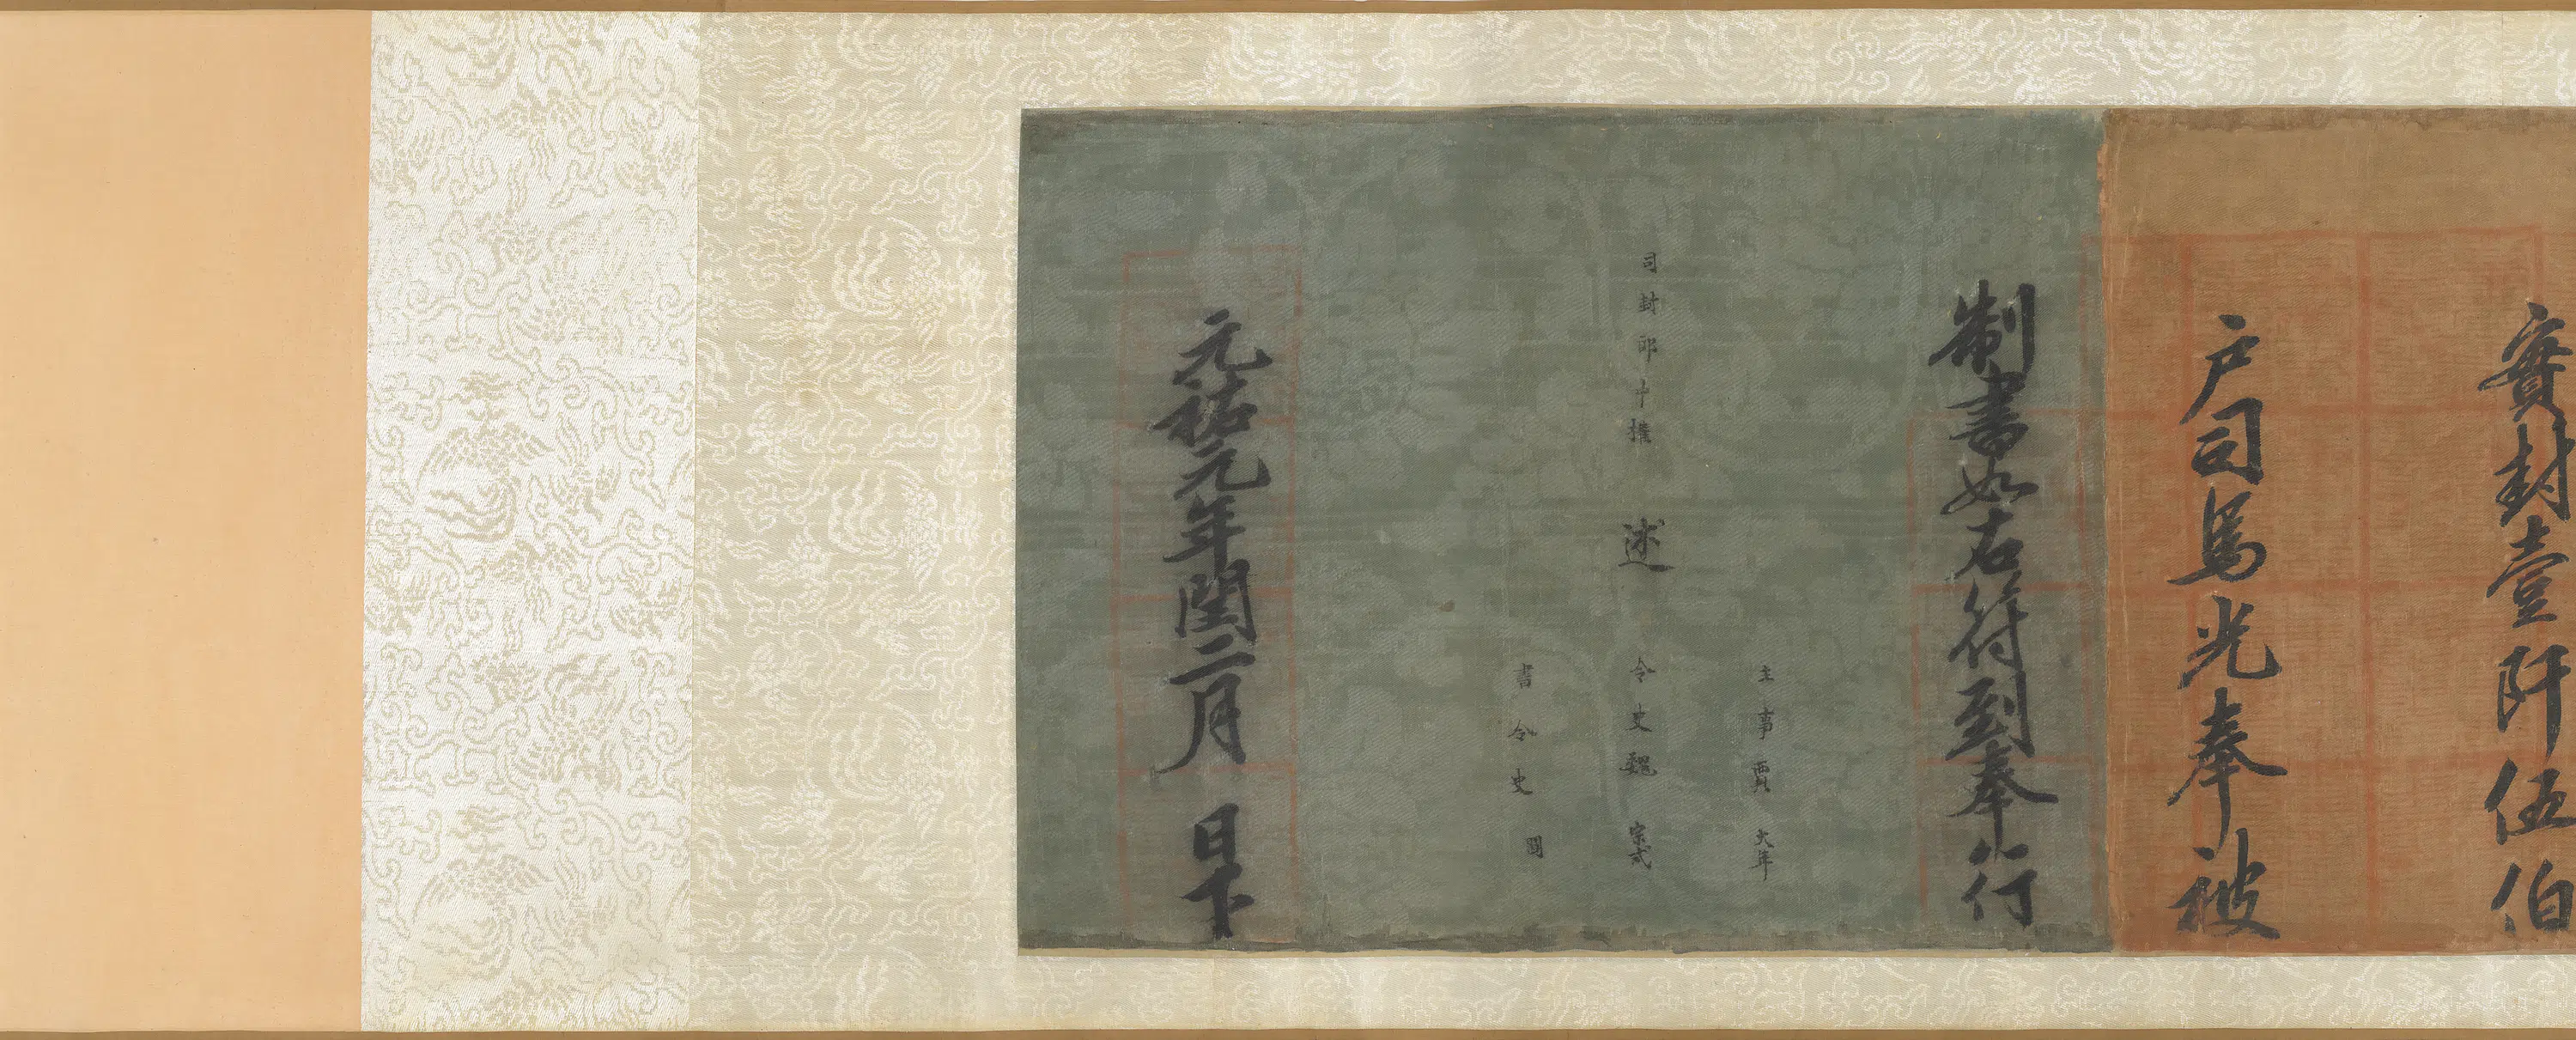 實封壹阡伍伯
戶司馬光奉被
制書如右符到奉行
主事賈大年
司封郎中權 述 令史魏宗式
書令史
元祐元年閏二月 日下